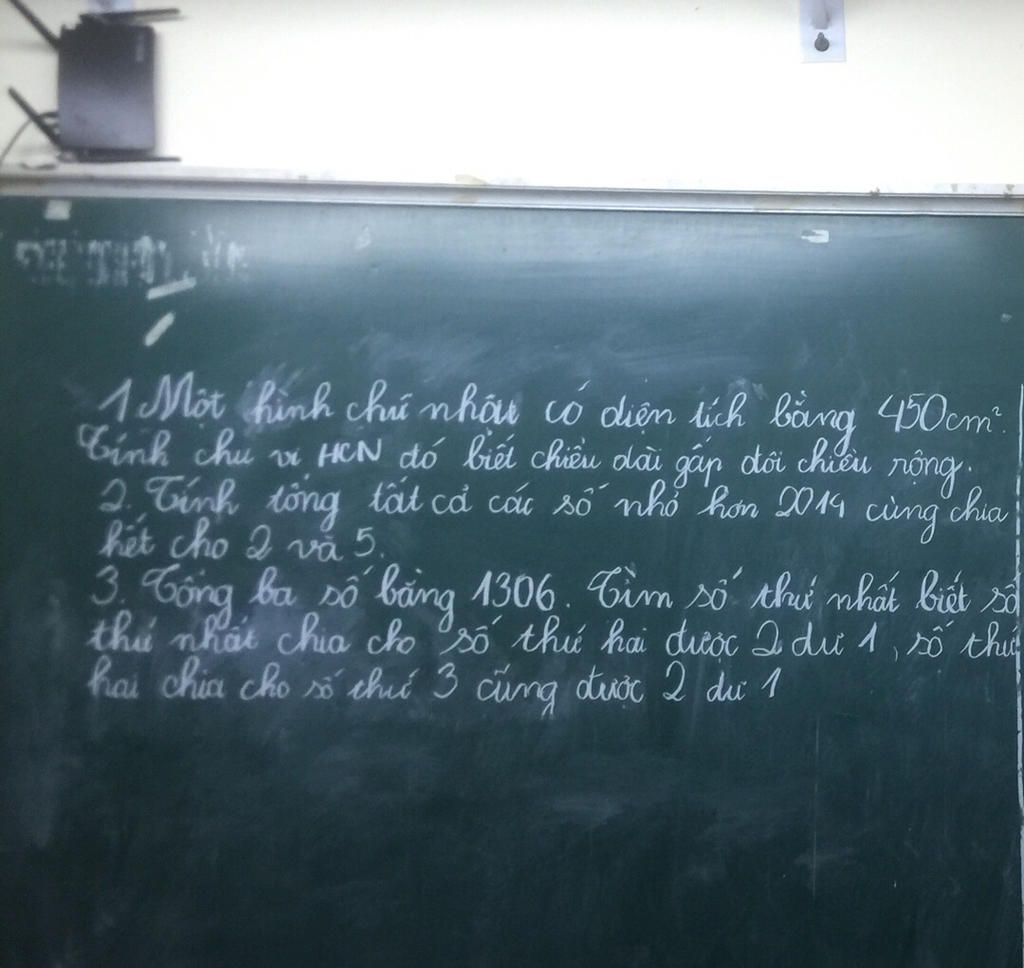 1 Một hình chữ nhật có diện tích bằng 450cm².
Tính chu vi HCN đó biết chiều dài gấp đôi chiều rộng.
2. Tính tổng tất cả các số nhỏ hơn 2019 cùng chia
hết cho 2 và 5.
3. Tổng ba số bằng 1306. Tìm số thứ nhất biết số
thứ nhất chia cho số thứ hai được 2 dư 1, số thứ
hai chia cho số thứ 3 cũng được 2 dư 1